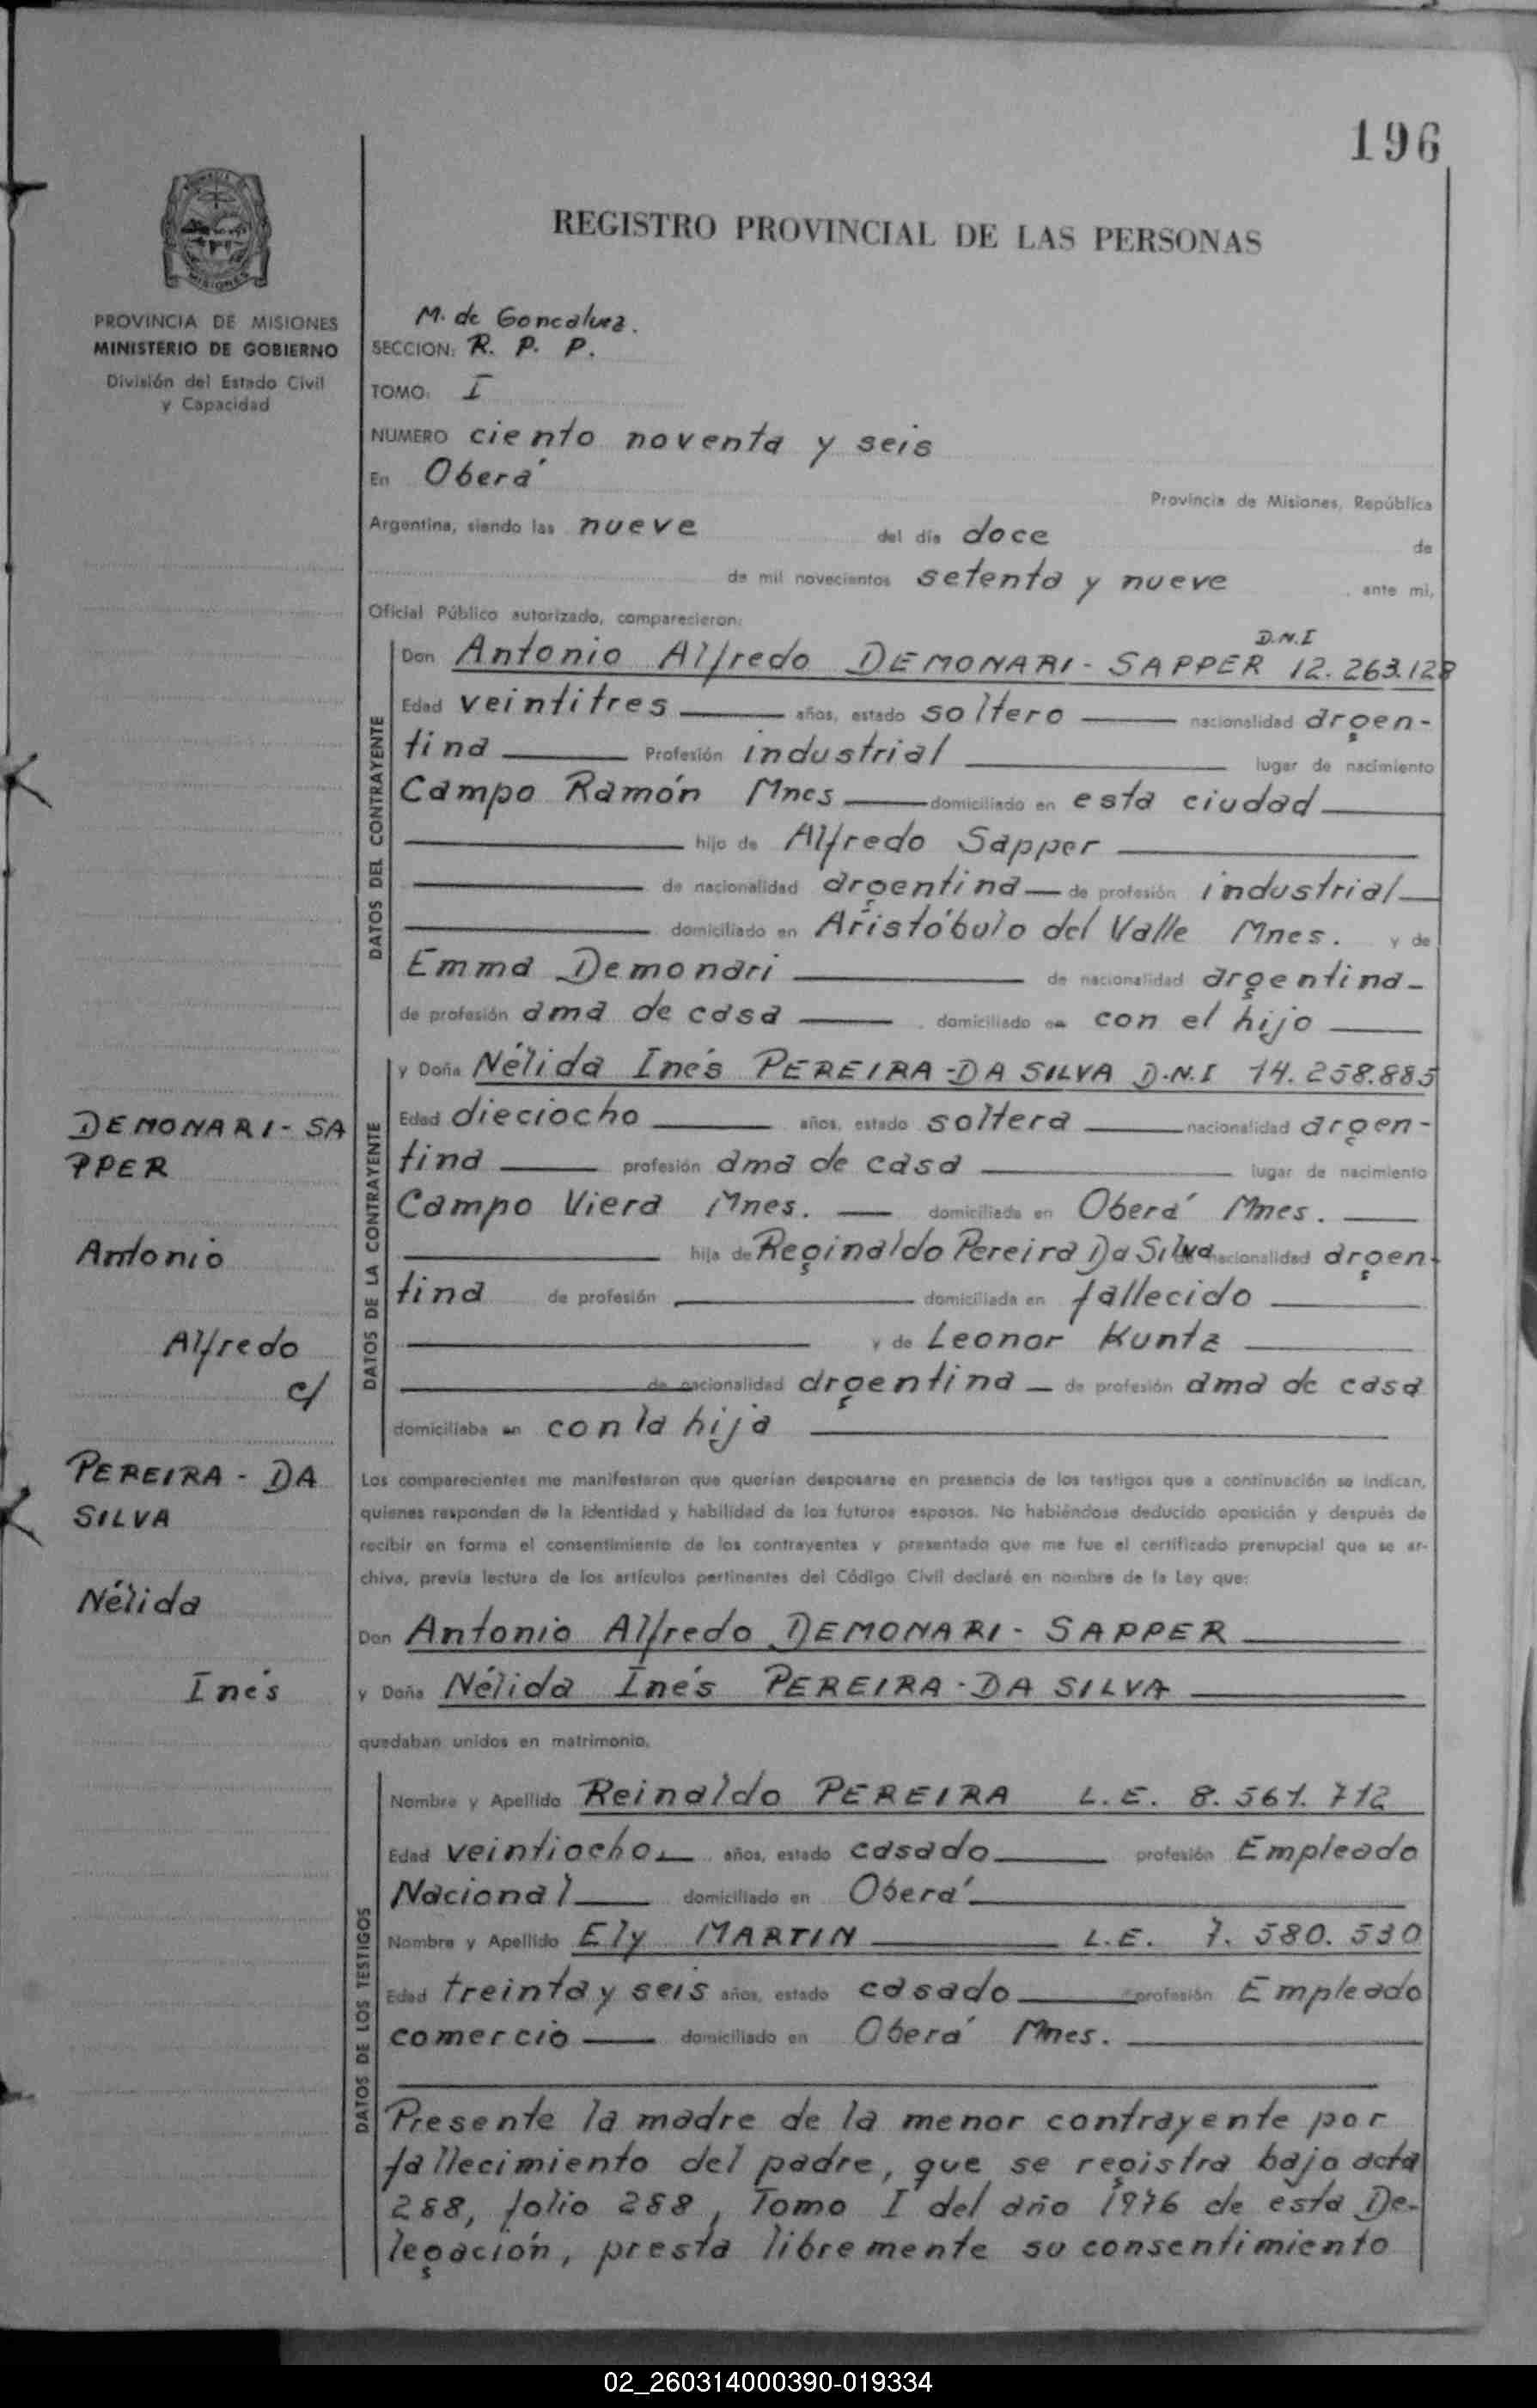 196
REGISTRO PROVINCIAL DE LAS PERSONAS
MISIONES
PROVINCIA DE MISIONES
MINISTERIO DE GOBIERNO
División del Estado Civil
y Capacidad
M. de Goncalvez.
SECCION: R. P. P.
TOMO: I
NUMERO ciento noventa y seis
En Oberá
Provincia de Misiones, República
Argentina, siendo las nueve del día doce de
de mil novecientos setenta y nueve, ante mi,
Oficial Público autorizado, comparecieron:
DATOS DEL CONTRAYENTE
D.N.I
Don Antonio Alfredo DEMONARI - SAPPER 12.263.128
Edad veintitres años, estado soltero nacionalidad argen-
tina Profesión industrial lugar de nacimiento
Campo Ramón Mnes domiciliado en esta ciudad
hijo de Alfredo Sapper
de nacionalidad argentina de profesión industrial
domiciliado en Aristóbulo del Valle Mnes. y de
Emma Demonari de nacionalidad argentina
de profesión ama de casa domiciliado en con el hijo
DATOS DE LA CONTRAYENTE
y Doña Nélida Inés PEREIRA-DA SILVA D.N.I 14.258.885
Edad dieciocho años, estado soltera nacionalidad argen-
tina profesión ama de casa lugar de nacimiento
Campo Viera Mnes. domiciliada en Oberá Mnes.
hija de Reginaldo Pereira Da Silva nacionalidad argen-
tina de profesión domiciliada en fallecido
y de Leonor Kuntz
de nacionalidad argentina de profesión ama de casa
domiciliaba en con la hija
DEMONARI - SA
PPER
Antonio
Alfredo
c/
PEREIRA - DA
SILVA
Nélida
Inés
Los comparecientes me manifestaron que querían desposarse en presencia de los testigos que a continuación se indican,
quienes responden de la identidad y habilidad de los futuros esposos. No habiéndose deducido oposición y después de
recibir en forma el consentimiento de los contrayentes y presentado que me fue el certificado prenupcial que se ar-
chiva, previa lectura de los artículos pertinentes del Código Civil declaré en nombre de la Ley que:
Don Antonio Alfredo DEMONARI - SAPPER
y Doña Nélida Inés PEREIRA - DA SILVA
quedaban unidos en matrimonio.
DATOS DE LOS TESTIGOS
Nombre y Apellido Reinaldo PEREIRA L.E. 8.561.712
Edad veintiocho años, estado casado profesión Empleado
Nacional domiciliado en Oberá
Nombre y Apellido Ely MARTIN L.E. 7.580.530
Edad treinta y seis años, estado casado profesión Empleado
comercio domiciliado en Oberá Mnes.
Presente la madre de la menor contrayente por
fallecimiento del padre, que se registra bajo acta
288, folio 288, Tomo I del año 1976 de esta De-
legación, presta libremente su consentimiento
02_260314000390-019334